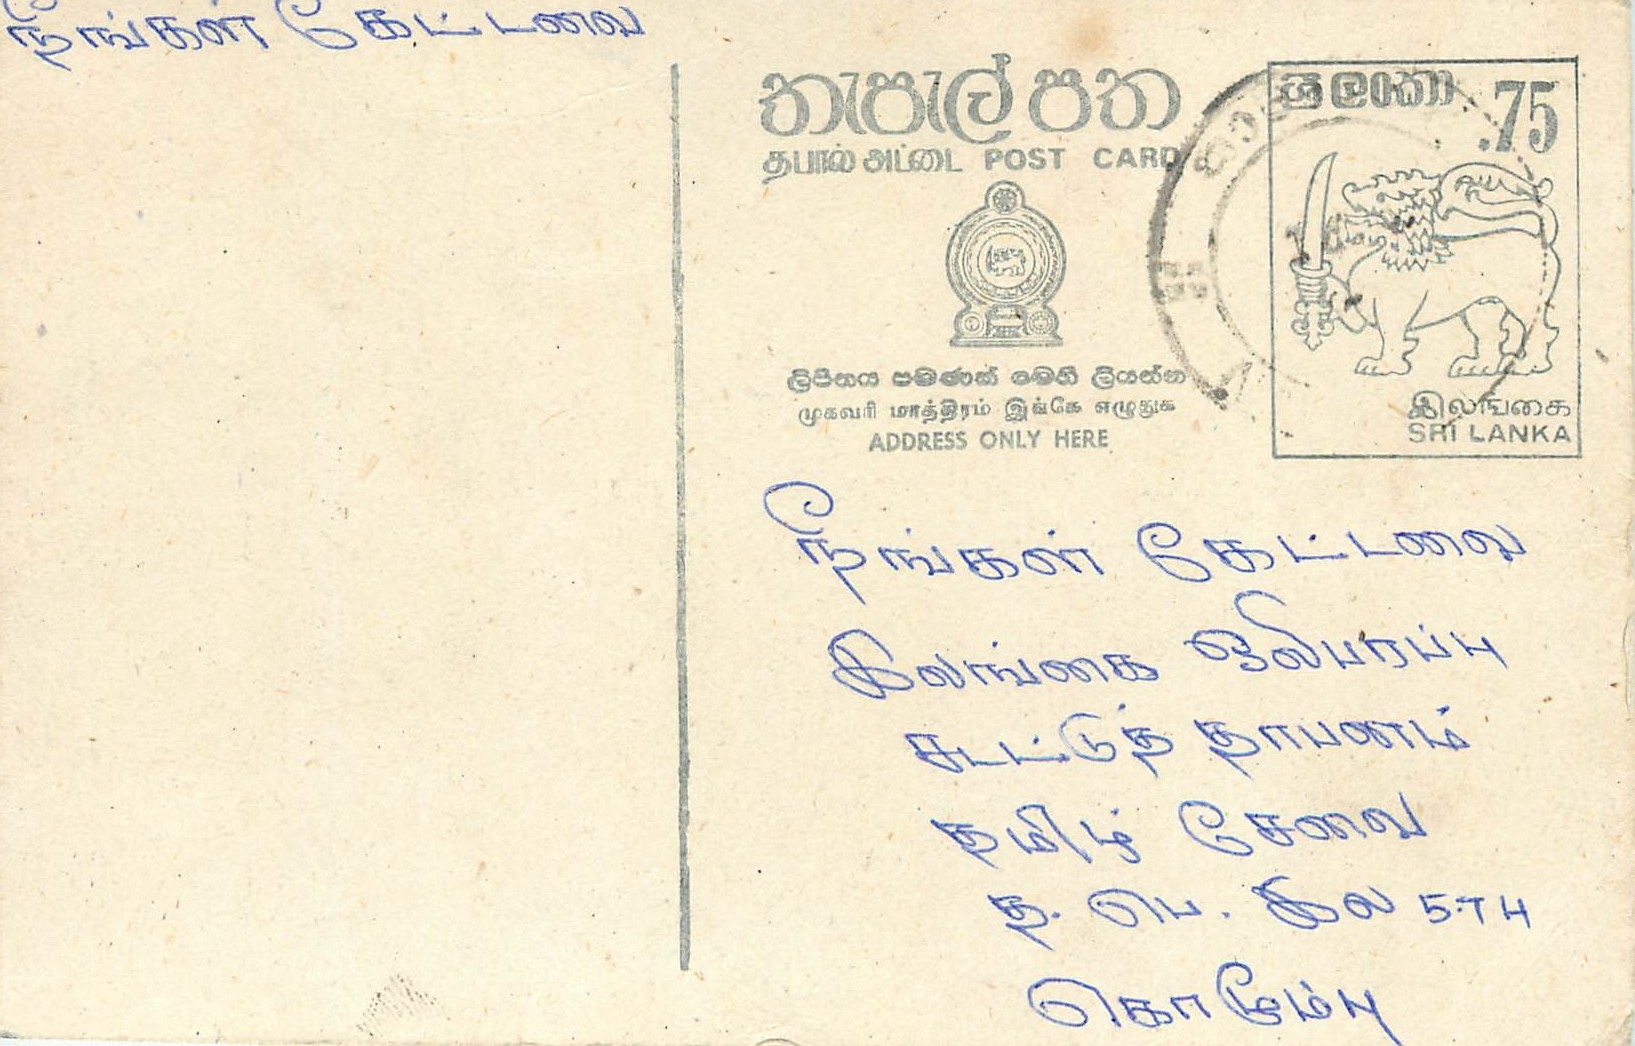 நீங்கள் கேட்டவை
තැපැල් පත
தபால் அட்டை POST CARD
ශ්‍රී ලංකා .75
ලිපිනය පමණක් මෙහි ලියන්න
முகவரி மாத்திரம் இங்கே எழுதுக
ADDRESS ONLY HERE
இலங்கை
SRI LANKA
நீங்கள் கேட்டவை
இலங்கை ஒலிபரப்பு
கூட்டுத் தாபனம்
தமிழ் சேவை
த. பெ. இல 574
கொழும்பு